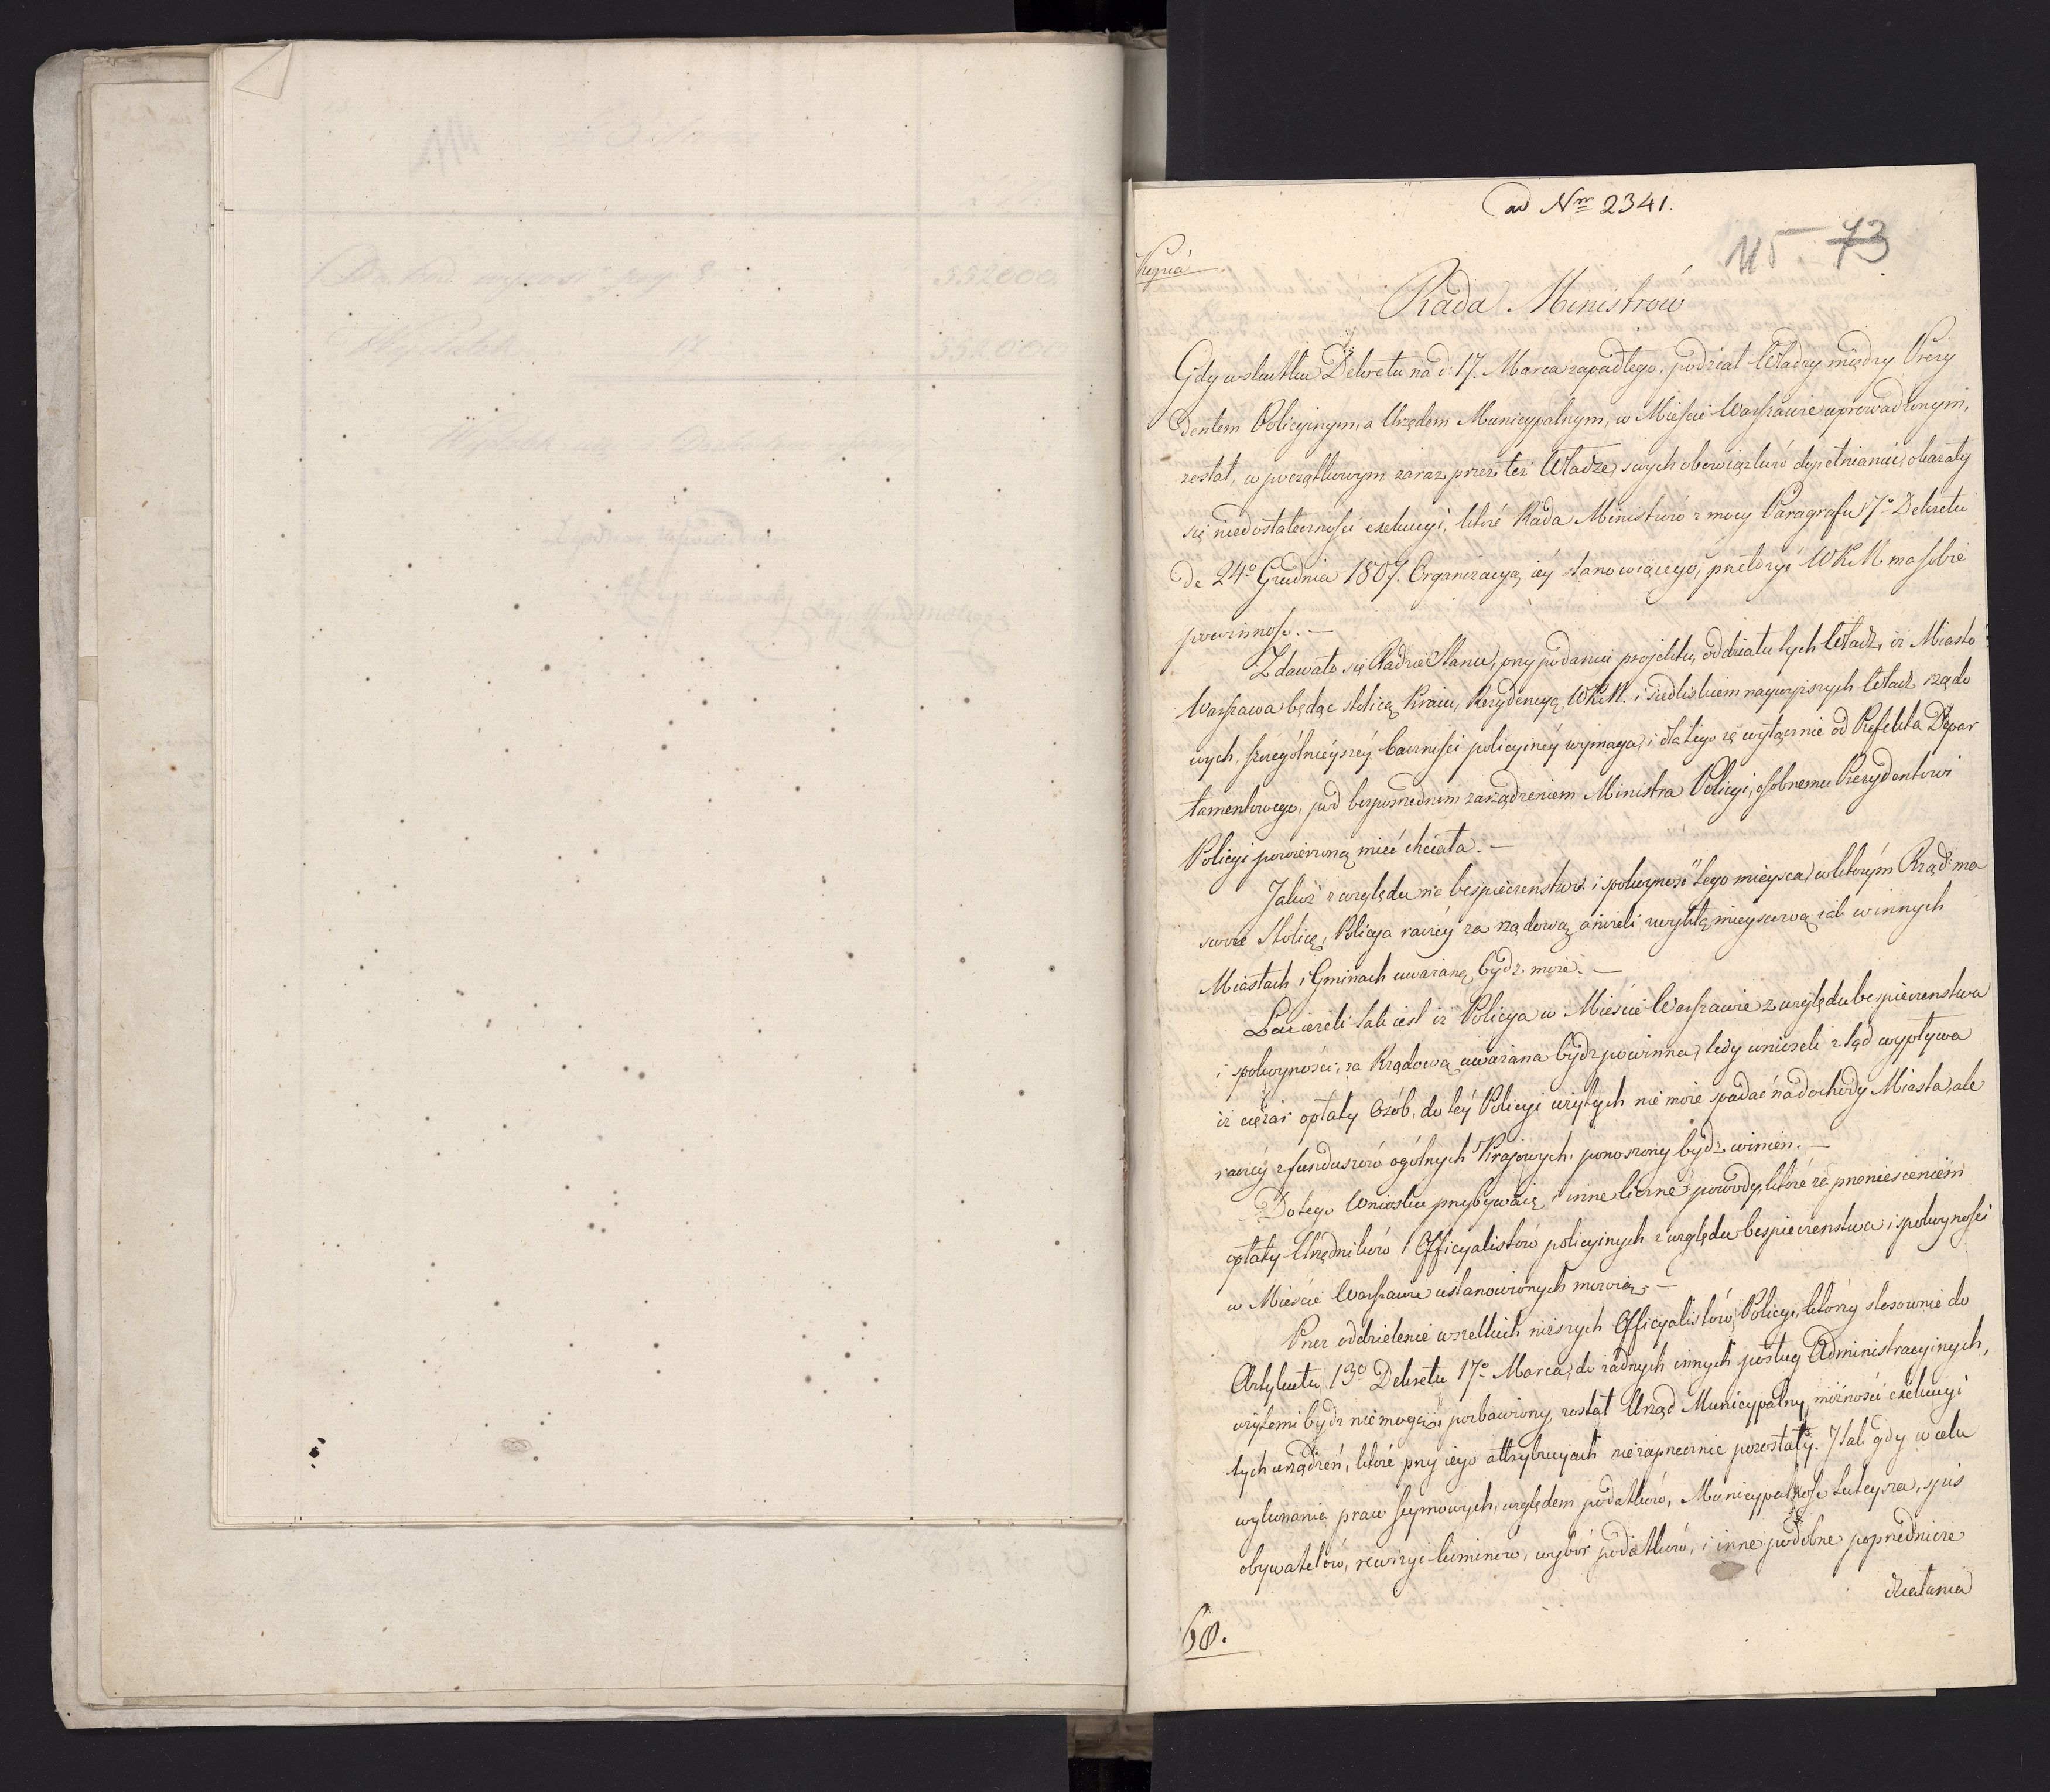 ad Nrn 2341.
115 73
Kopia
Rada Ministrów
Gdy w skutku Dekretu na d: 17. Marca zapadłego, podział Władzy między Prezy
dentem Policyinym, a Urzędem Municypalnym, w Mieście Warszawie uprowadzonym,
został, w początkowym zaraz przez też Władze, swych obowiązków dopełnianiu, okazały
się niedostateczności exekucyi, które Rada Ministrów z mocy Paragrafu 7o Dekretu
de 24o Grudnia 1807. Organizacyą iéy stanowiącego, przełożyć WKM ma sobie
powinność. —
Zdawało się Radzie Stanu, przy podaniu projektu, oddziału tych Władz, iż Miasto
Warszawa będąc stolicą Kraiu, Rezydencyą WKM. i siedliskiem naywyższych Władz rządo
wych, szczególnieyszéy baczności policyinéy wymaga, i dla tego ią wyłącznie od Prefekta Depar
tamentowego, pod bezpośrednim zarządzeniem Ministra Policyi, osobnemu Prezydentowi
Policyi powierzoną mieć chciała. —
Jakoż z względu na bezpieczeństwo i spokoyność tego mieysca, w którym Rząd ma
swoie Stolicę, Policya raczéy za rządową aniżeli zwykłą mieyscową iak w innych
Miastach i Gminach uważaną bydź może. —
Lecz ieżeli tak iest iż Policya w Mieście Warszawie z względu bespieczenstwa
i spokoyności, za Rządową uważana bydź powinna, tedy wniosek z tąd wypływa
iż ciężar opłaty Osób, do téy Policyi użytych nie może spadać na dochody Miasta, ale
raczéy z funduszów ogólnych Krajowych, ponoszony bydź winien. —
Do tego Wniosku przybywaią i inne liczne powody, które za przeniesieniem
opłaty Urzędników i Officyalistów policyinych z względu bespieczenstwa i spokoyności
w Mieście Warszawie ustanowionych mówią. —
Przez oddzielenie wszelkich niższych Officyalistów Policyi, którzy stosownie do
Artykułu 13o Dekretu 17o Marca, do żadnych innych posług Administracyinych,
użytemi bydź nie mogą, pozbawiony został Urząd Municypalny, możności exekucyi
tych urządzeń, które przy iego attrybucyach niezaprzecznie pozostały. I tak gdy w celu
wykonania praw seymowych, względem podatków, Municypalność tuteysza, spis
obywatelów, rewizyi kominów, wybór podatków, i inne podobne poprzednicze
działania
68.